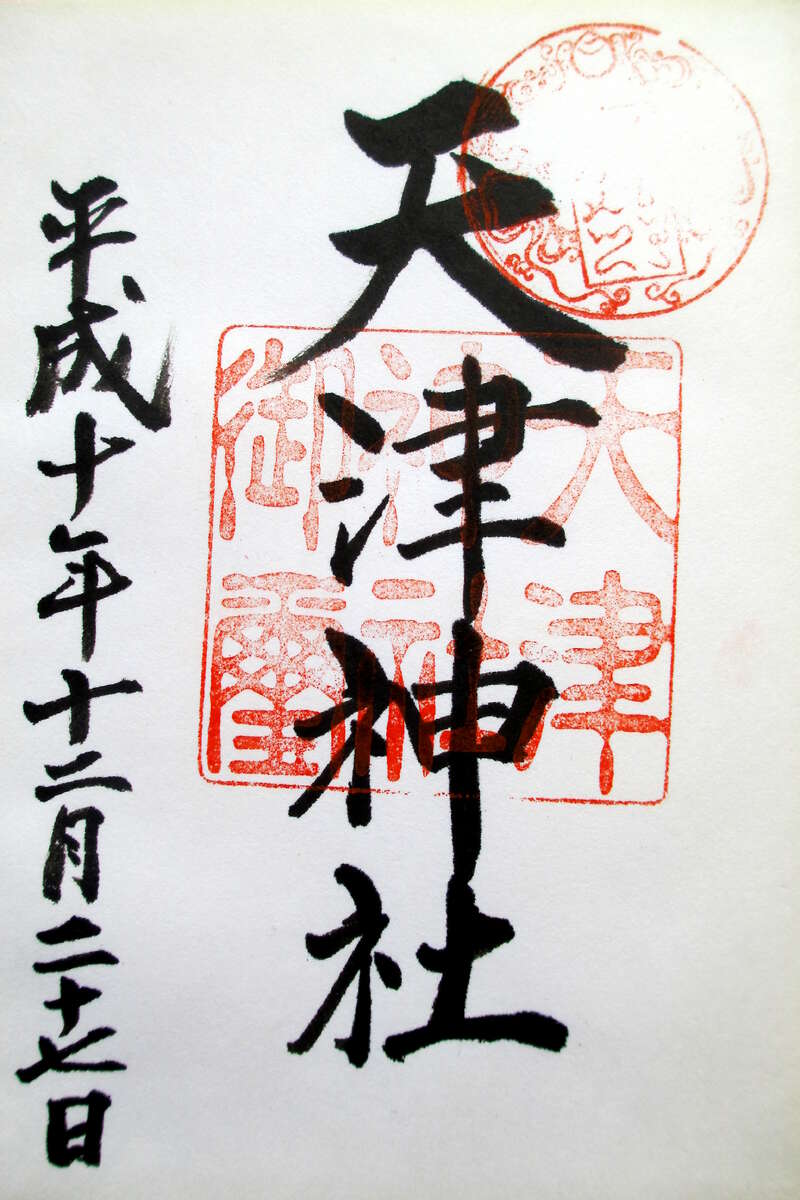 天津神社
天津
神社
御璽
平成十年十二月二十七日